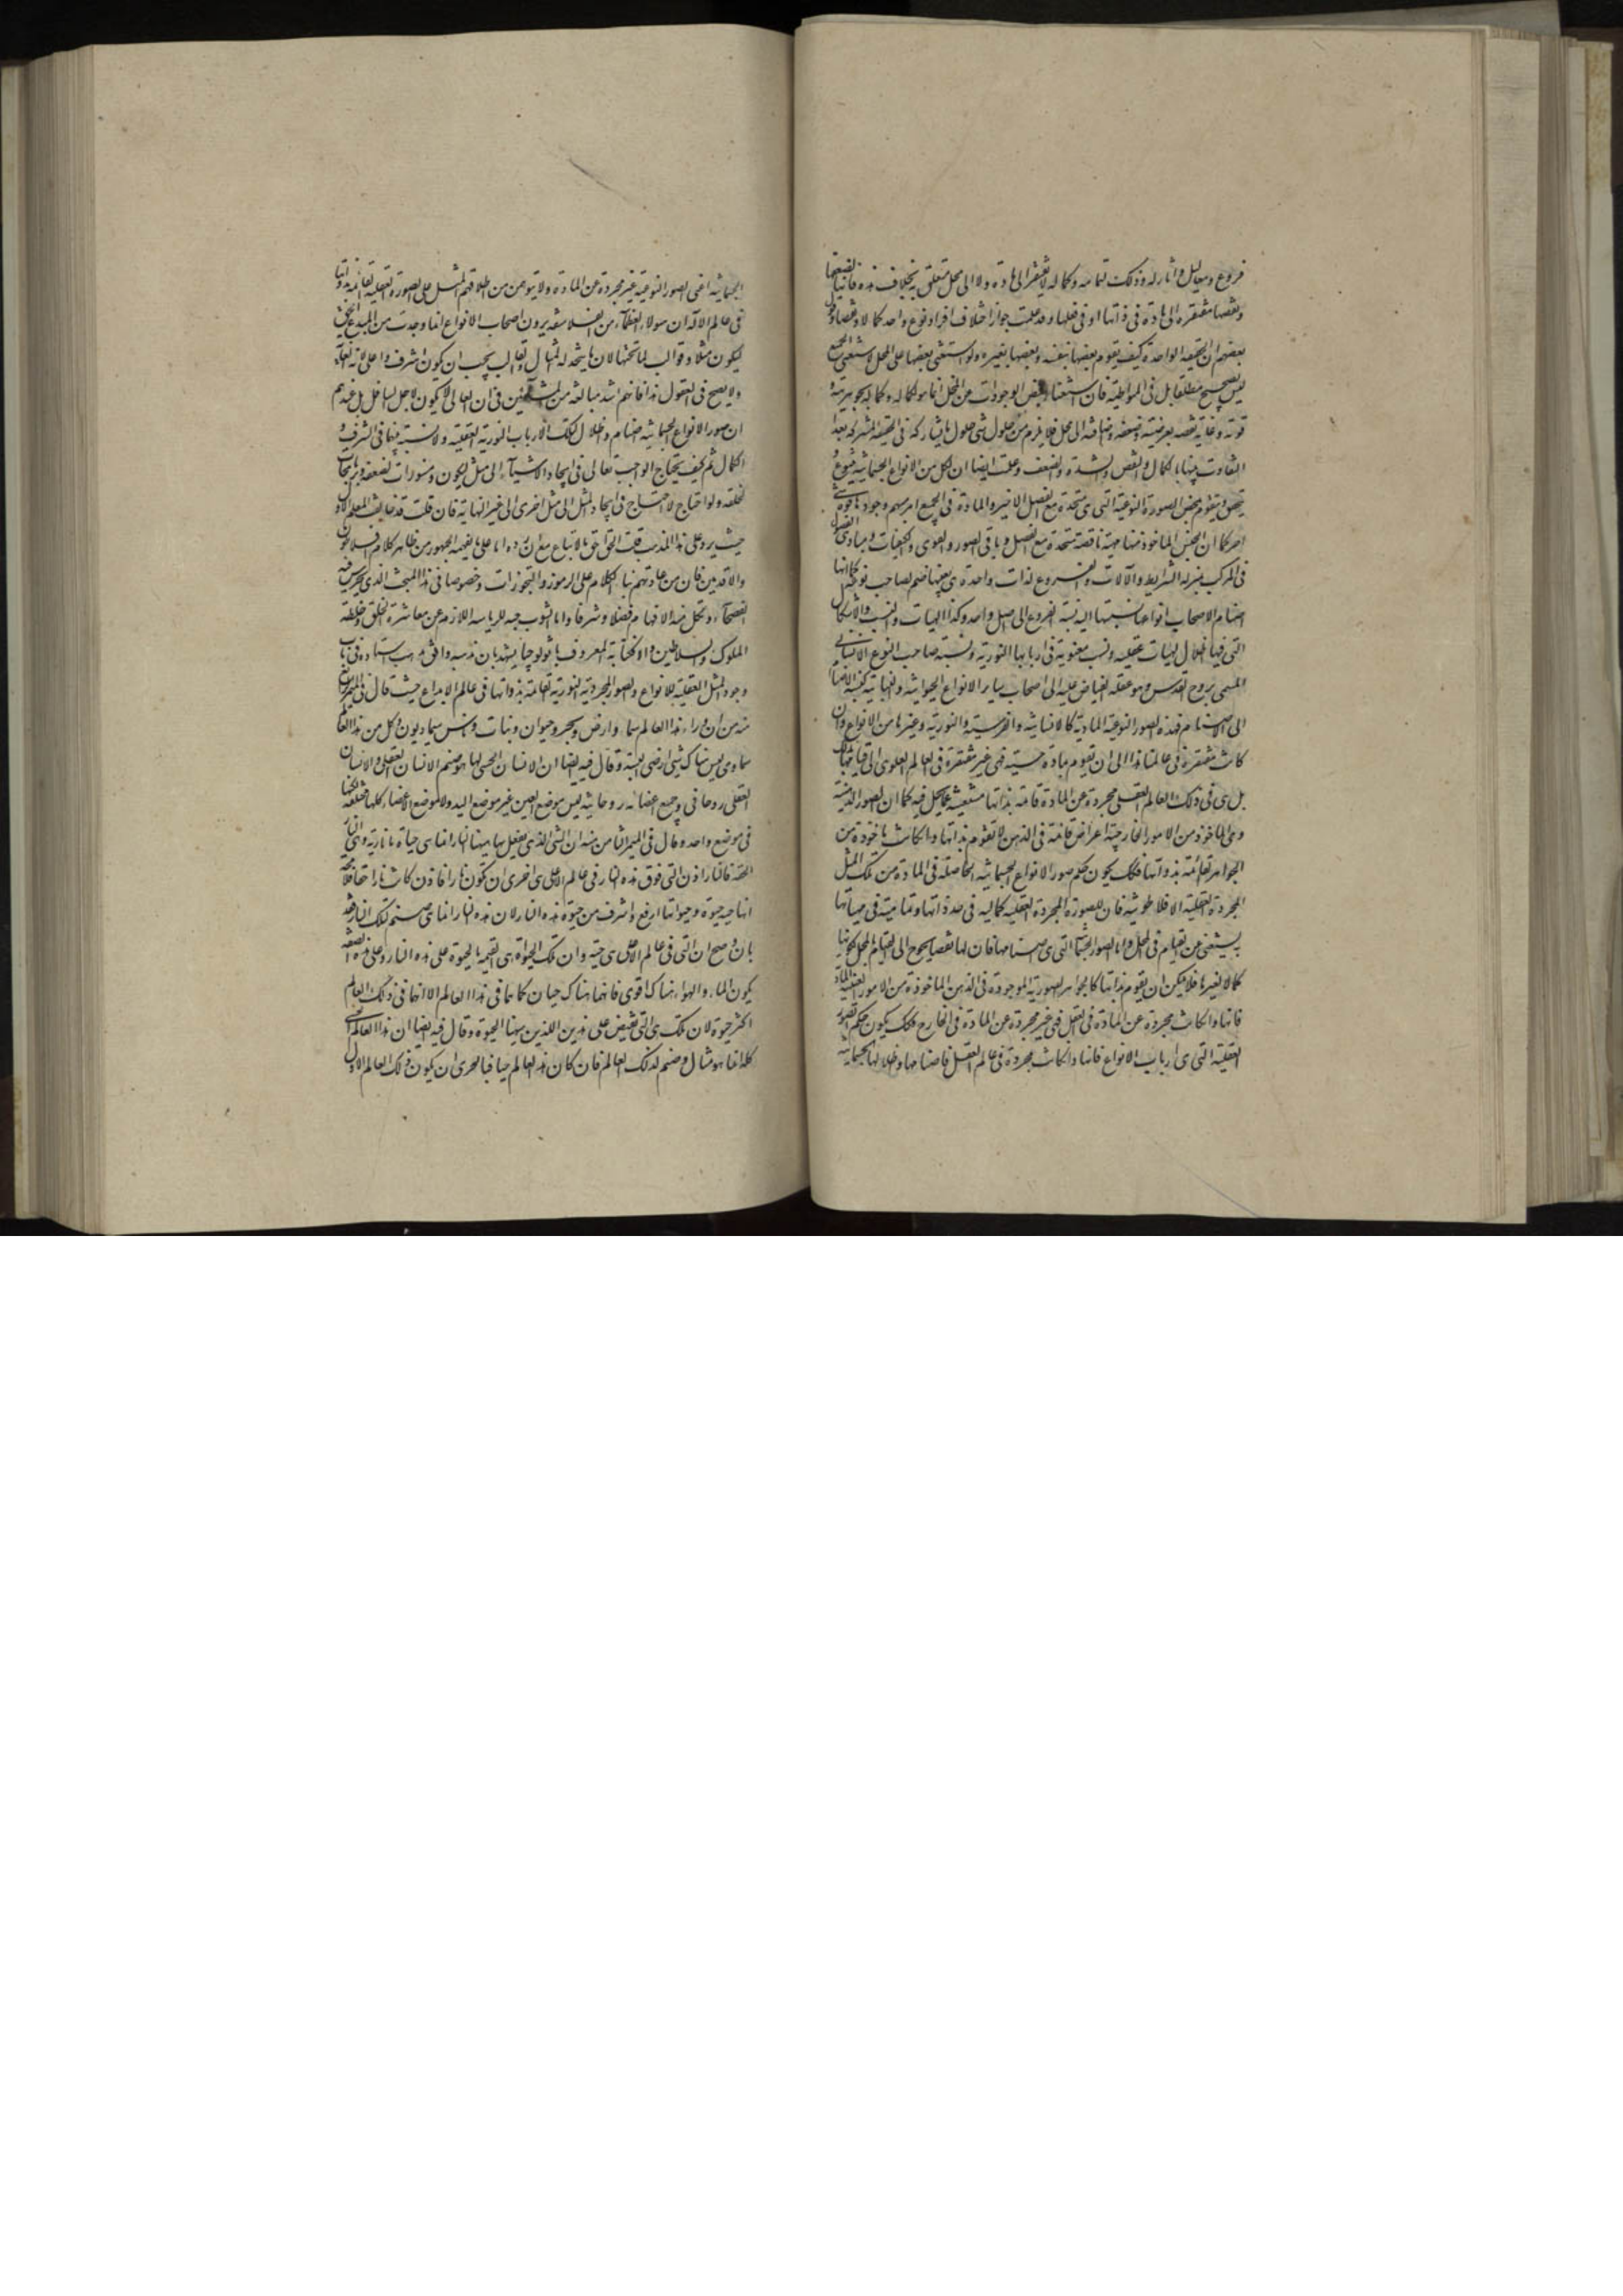 فروع ومعاليل وآثار له وذلك لتمامه وكماله لا يفتقر الى مادة ولا الى محل متعلق به بخلاف هذه فانها لضعفها
ونقصها مفتقرة الى مادة فى ذاتها او فى فعلها وقد علمت جواز اختلاف افراد نوع واحد كمالا ونقصا وقول
بعضهم ان الحقيقة الواحدة كيف يقوم بعضها بنفسه وبعضها بغيره ولو استغنى بعضها عن المحل لاستغنى الجميع
ليس بصحيح مطلقا بل فى المتواطية فان استغناء بعض الوجودات عن المحل انما هو لكماله وكماله بجوهريته و
قوته وغاية نقصه بعرضيته وضعفه واضافته الى محل فلا يلزم من حلول شى حلول ما يشاركه فى الحقيقة المشتركة بعد
التفاوت بينها بالكمال والنقص والشدة والضعف وعلمت ايضا ان لكل من الانواع الجسمانية يتنوع
تحصل ويتقوم بمحض الصورة النوعية التى هى متحدة مع الفصل الاخير والمادة فى الجميع امر مبهم وجودها قوة شى
اخر كما ان الجنس الماخوذ منها مهية ناقصة متحدة مع الفصل وباقى الصور والقوى والكيفيات ومبادى الفصول
فى المركب بمنزلة الشرايط والالات والفروع لذات واحدة هى بعينها صنم لصاحب نوعها كما انها
اصنام لاصحاب انواعها نسبتها اليه نسبة الفروع الى اصل واحد وكذا الهيات والنسب والاشكال
التى فيها اظلال لهيات عقلية ونسب معنوية فى اربابها النورية ونسبة صاحب النوع الانسانى
المسمى بروح القدس وهو عقله الفياض عليه الى اصحاب ساير الانواع الحيوانية والنباتية كنسبة الاصنام
الى الاصنام فهذه الصور النوعية المادية كالانسانية والفرسية والثورية وغيرها من الانواع وان
كانت مفتقرة فى عالمنا هذا الى ان تقوم بمادة حسية فهى غير مفتقرة فى العالم العلوى الى قيامها بمادة
بل هى فى ذلك العالم العقلى مجردة عن المادة قائمة بذاتها مستغنية عما يحل فيه كما ان الصور الذهنية
وهى الماخوذ من الامور الخارجية اعراض قائمة فى الذهن لا تقوم بذاتها وان كانت ماخوذة من
الجواهر القائمة بذواتها فكك يكون حكم صور الانواع الجسمانية الحاصلة فى المادة من تلك المثل
المجردة العقلية الافلاطونية فان للصورة المجردة العقلية كمالية فى حد ذاتها وتمامية فى مهياتها
به يستغنى عن القيام فى المحل واما الصور الجسمانية التى هى اصنامها فان لها نقصا يحوج الى القيام بالمحل لكونها
كمالا لغيرها فلا يمكن ان يقوم بذاتها كالجواهر الصورية الموجودة فى الذهن الماخوذة من الامور العينية المادية
فانها وان كانت مجردة عن المادة فى العقل فهى غير مجردة عن المادة فى الخارج فكك يكون حكم الصور
العقلية التى هى ارباب الانواع فانها وان كانت مجردة فى عالم العقل فاصنامها وظلالها الجسمانية
الجسمانية اعنى الصور النوعية غير مجردة عن المادة ولا يتوهمن من اطلاقهم المثل على الصورة العقلية القائمة بذواتها
فى عالم الاله ان هولاء العظماء من الفلاسفة يرون اصحاب الانواع انما وجدت من المبدع الحق
ليكون مثلا وقوالب لما تحتها لان ما يتخذ له المثال والقالب يجب ان يكون اشرف واعلى لانه الغاية
ولا يصح فى العقول هذا فانهم اشد مبالغة من المشائين فى ان العالى لا يكون لاجل السافل بل عندهم
ان صور الانواع الجسمانية اصنام وظلال لتلك الارباب النورية العقلية ولا نسبة بينهما فى الشرف و
الكمال ثم كيف يحتاج الواجب تعالى فى ايجاد الاشياء الى مثل ليكون دستورات لصنعه وبرنامجات
لخلقه ولو احتاج لاحتاج فى ايجاد المثل الى مثل اخرى الى غير النهاية فان قلت قد خالف المعلم الاول
حيث يرد على هذا المذهب قلت الحق احق بالاتباع مع ان رده اما على ما يفهمه الجمهور من ظاهر كلام افلاطون
والاقدمين فان من عادتهم بناء الكلام على الرموز والتجوزات وخصوصا فى هذا المبحث الذى يخرس فيه
الفصحاء وتكل منه الافهام فضلا وشرفا واما لشوب حبه للرياسة اللازمة عن معاشرة الخلق وخلطة
الملوك والسلاطين والا فكتابه المعروف باثولوجيا يشهد بان مذهبه وافق مذهب استاده فى باب
وجود المثل العقلية للانواع والصور المجردية النورية القائمة بذواتها فى عالم الابداع حيث قال فى الميمر الرابع
منه من ان وراء هذا العالم سماء وارض وبحر وحيوان ونبات وناس سماويون وكل من هذا العالم
سماوى ليس هناك شى ارضى البتة وقال فيه ايضا ان الانسان الحسى انما هو صنم الانسان العقلى والانسان
العقلى روحانى وجميع اعضائه روحانية ليس موضع العين غير موضع اليد ولا مواضع الاعضاء كلها مختلفة لكنها
فى موضع واحد وقال فى الميمر الثامن منه ان الشى الذى يفعل بها ههنا النار انما هى حياة ما نارية وهى النار
الحقة فالنار اذن التى فوق هذه النار فى عالم الاعلى هى احرى ان تكون نارا فان كانت نارا حقا فلا محالة
انها حية وحيوتها ارفع واشرف من حيوة هذه النار لان هذه النار انما هى صنم لتلك النار فقد
بان وصح ان التى فى عالم الاعلى هى حية وان تلك الحيوة هى القيمة بالحيوة على هذه النار وعلى هذه الصفة
يكون الماء والهواء هناك اقوى فانهما هناك حيان كما هما فى هذا العالم الا انهما فى ذلك العالم
اكثر حيوة لان تلك هى التى تفيض على هذين اللذين ههنا الحيوة وقال فيه ايضا ان هذا العالم الحسى
كله انما هو مثال وصنم لذلك العالم فان كان هذا العالم حيا فبالحرى ان يكون ذلك العالم الاول